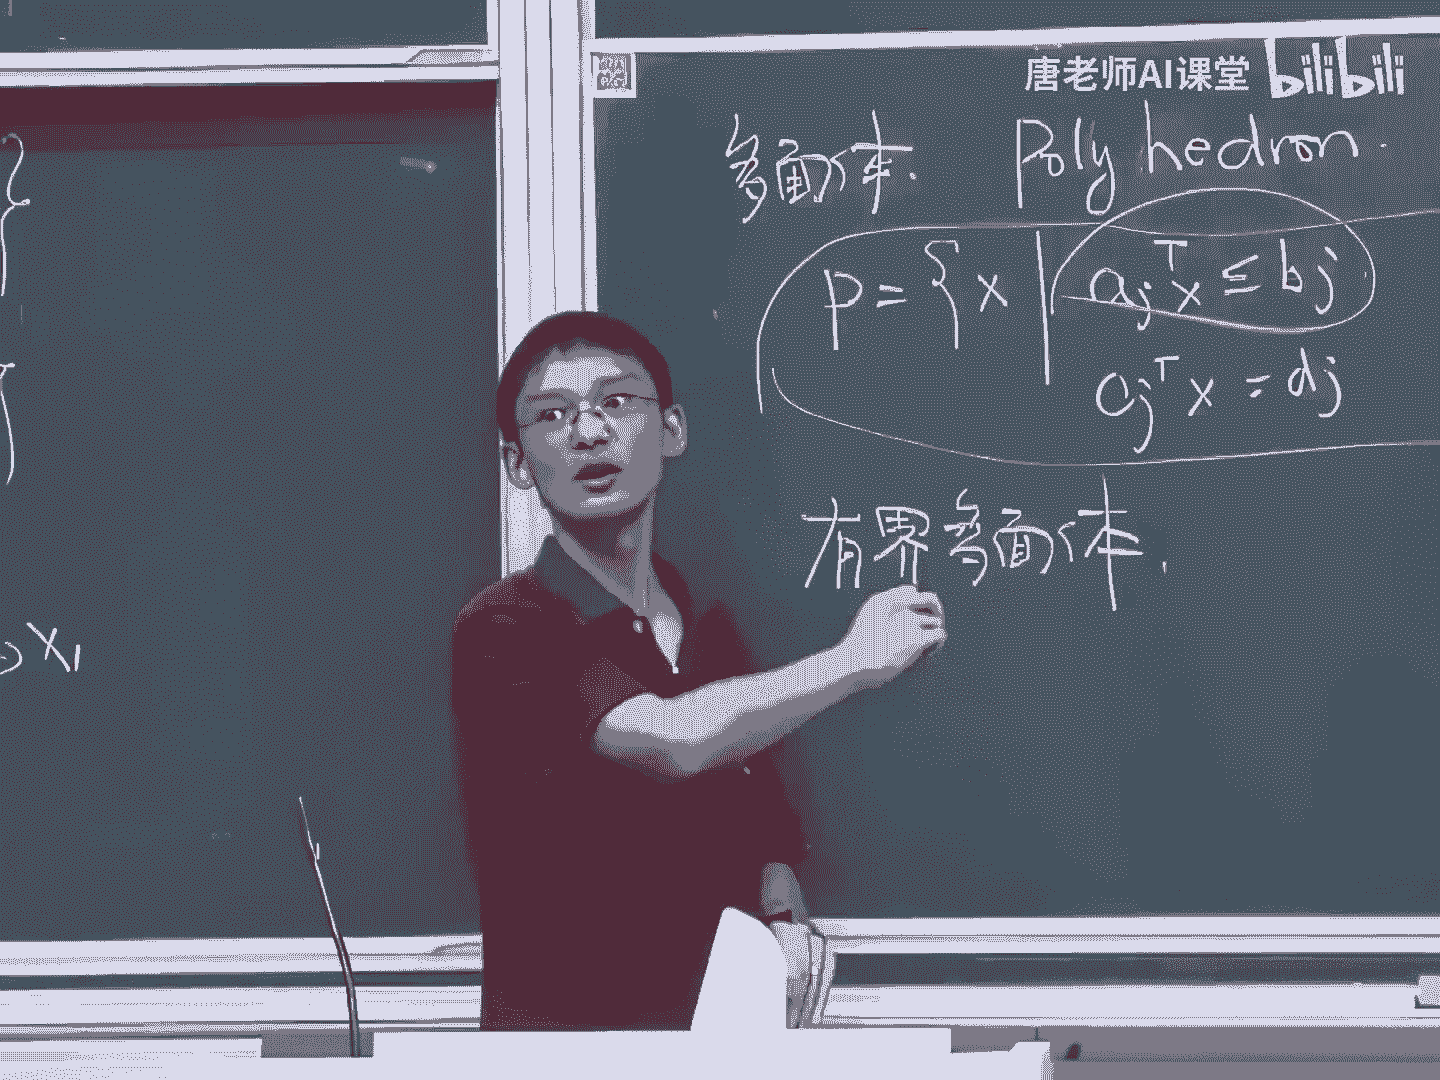 唐老师AI课堂 bilibili
多面体. Polyhedron.
P = { x | ajᵀx ≤ bj
cjᵀx = dj
有界多面体.
x₁